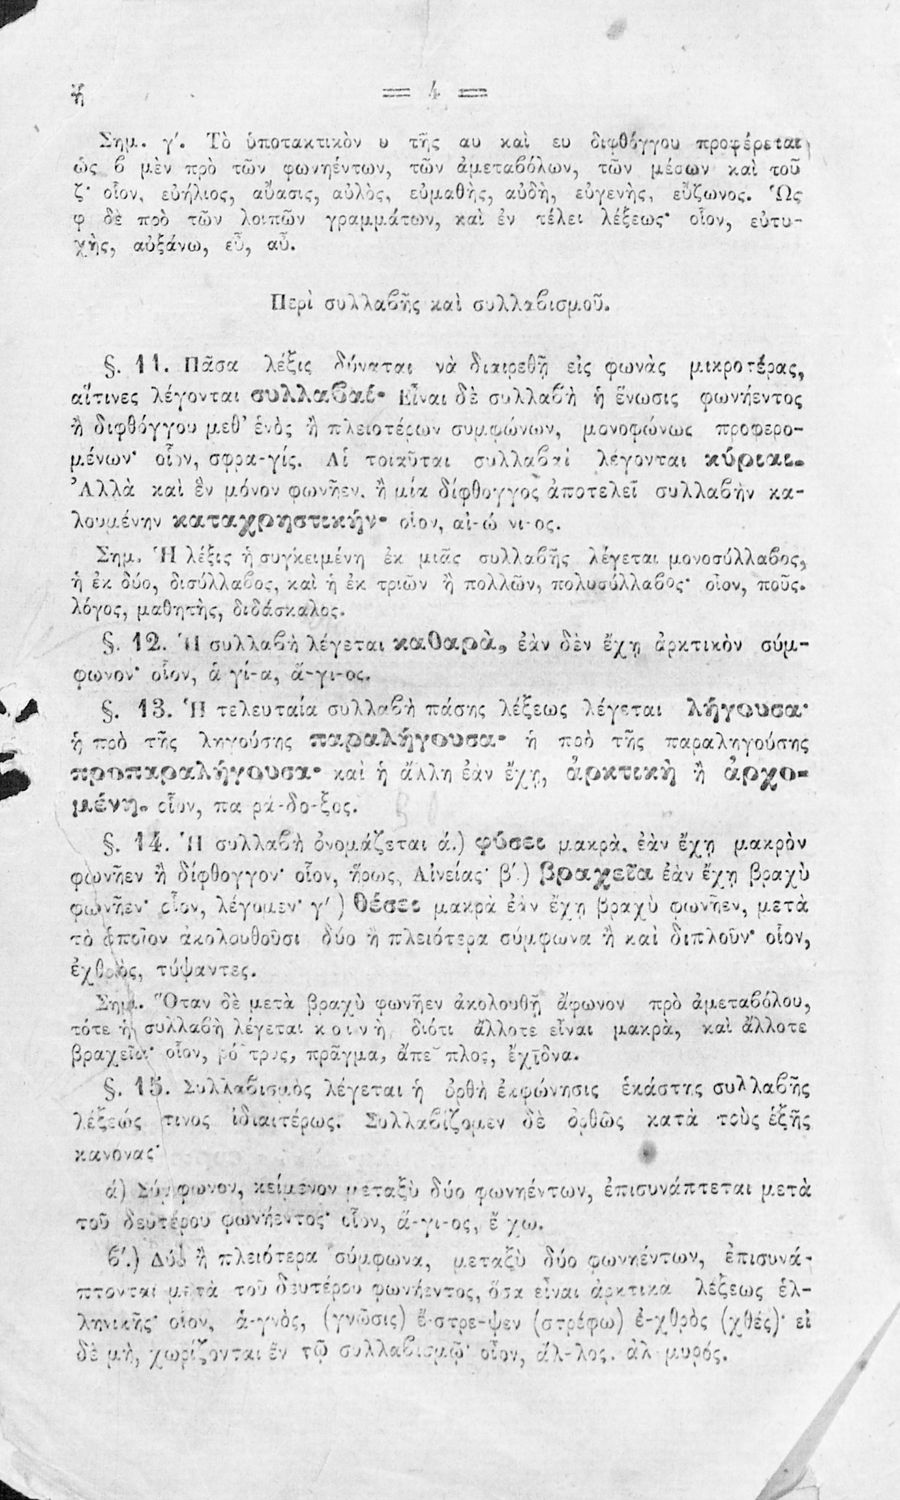 = 4 =
Σημ. γ'. Τὸ ὑποτακτικὸν υ τῆς αυ καὶ ευ διφθόγγου προφέρεται
ὡς β μὲν πρὸ τῶν φωνηέντων, τῶν ἀμεταβόλων, τῶν μέσων καὶ τοῦ
ζ· οἷον, εὐήλιος, αὔασις, αὐλὸς, εὐμαθὴς, αὐδὴ, εὐγενὴς, εὔζωνος. Ὡς
φ δὲ πρὸ τῶν λοιπῶν γραμμάτων, καὶ ἐν τέλει λέξεως· οἷον, εὐτυ-
χὴς, αὐξάνω, εὖ, αὖ.
Περὶ συλλαβῆς καὶ συλλαβισμοῦ.
§. 11. Πᾶσα λέξις δύναται νὰ διαιρεθῇ εἰς φωνὰς μικροτέρας,
αἵτινες λέγονται συλλαβαί· Εἶναι δὲ συλλαβὴ ἡ ἕνωσις φωνήεντος
ἢ διφθόγγου μεθ' ἑνὸς ἢ πλειοτέρων συμφώνων, μονοφώνως προφερο-
μένων· οἷον, σφρα-γίς. Αἱ τοιαῦται συλλαβαὶ λέγονται κύριαι.
Ἀλλὰ καὶ ἓν μόνον φωνῆεν, ἢ μία δίφθογγος ἀποτελεῖ συλλαβὴν κα-
λουμένην καταχρηστικήν· οἷον, αἰ-ώ νι-ος.
Σημ. Ἡ λέξις ἡ συγκειμένη ἐκ μιᾶς συλλαβῆς λέγεται μονοσύλλαβος,
ἡ ἐκ δύο, δισύλλαβος, καὶ ἡ ἐκ τριῶν ἢ πολλῶν, πολυσύλλαβος· οἷον, ποῦς.
λόγος, μαθητὴς, διδάσκαλος.
§. 12. Ἡ συλλαβὴ λέγεται καθαρὰ, ἐὰν δὲν ἔχῃ ἀρκτικὸν σύμ-
φωνον· οἷον, ἁ γί-α, ἅ-γι-ος.
§. 13. Ἡ τελευταία συλλαβὴ πάσης λέξεως λέγεται λήγουσα·
ἡ πρὸ τῆς ληγούσης παραλήγουσα· ἡ πρὸ τῆς παραληγούσης
προπαραλήγουσα· καὶ ἡ ἄλλη ἐὰν ἔχῃ, ἀρκτικὴ ἢ ἀρχο-
μένη. οἷον, πα ρά-δο-ξος.
§. 14. Ἡ συλλαβὴ ὀνομάζεται ά.) φύσει μακρὰ, ἐὰν ἔχῃ μακρὸν
φωνῆεν ἢ δίφθογγον· οἷον, ἥρως, Αἰνείας· β'.) βραχεῖα ἐὰν ἔχῃ βραχὺ
φωνῆεν· οἷον, λέγομεν· γ') θέσει μακρὰ ἐὰν ἔχῃ βραχὺ φωνῆεν, μετὰ
τὸ ὁποῖον ἀκολουθοῦσι δύο ἢ πλειότερα σύμφωνα ἢ καὶ διπλοῦν· οἷον,
ἐχθρὸς, τύψαντες.
Σημ. Ὅταν δὲ μετὰ βραχὺ φωνῆεν ἀκολουθῇ ἄφωνον πρὸ ἀμεταβόλου,
τότε ἡ συλλαβὴ λέγεται κοινὴ, διότι ἄλλοτε εἶναι μακρὰ, καὶ ἄλλοτε
βραχεῖα· οἷον, βό τρυς, πρᾶγμα, ἄπε πλος, ἔχιδνα.
§. 15. Συλλαβισμὸς λέγεται ἡ ὀρθὴ ἐκφώνησις ἑκάστης συλλαβῆς
λέξεώς τινος ἰδιαιτέρως. Συλλαβίζομεν δὲ ὀρθῶς κατὰ τοὺς ἑξῆς
κανόνας·
ά) Σύμφωνον, κείμενον μεταξὺ δύο φωνηέντων, ἐπισυνάπτεται μετὰ
τοῦ δευτέρου φωνήεντος· οἷον, ἅ-γι-ος, ἔ χω.
β'.) Δύο ἢ πλειότερα σύμφωνα, μεταξὺ δύο φωνηέντων, ἐπισυνά-
πτονται μετὰ τοῦ δευτέρου φωνήεντος, ὅσα εἶναι ἀρκτικὰ λέξεως ἑλ-
ληνικῆς· οἷον, ἁ-γνὸς, (γνῶσις) ἔ-στρε-ψεν (στρέφω) ἐ-χθρὸς (χθές)· εἰ
δὲ μὴ, χωρίζονται ἐν τῷ συλλαβισμῷ· οἷον, ἄλ-λος. ἁλ μυρός.